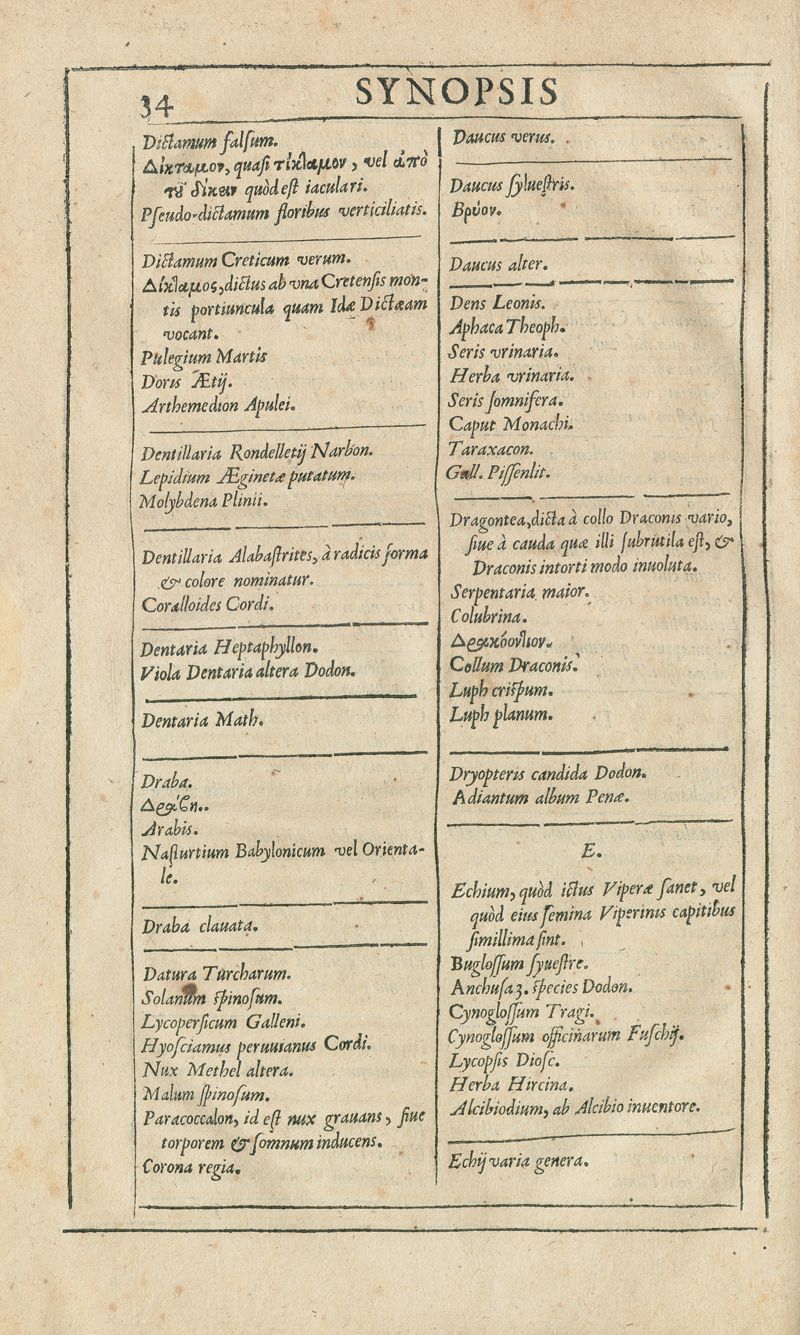 34
SYNOPSIS
Dictamum falſum.
Δίκταμον, quaſi τίκταμον, vel ἀπὸ
τȣ͂ δίκειν quòd eſt iaculari.
Pſeudo-dictamum floribus verticillatis.
Dictamum Creticum verum.
Δίκταμος, dictus ab vna Cretenſis mon-
tis portiuncula quam Idæ Dictæam
vocant.
Pulegium Martis
Doris Ætij.
Arthemedion Apulei.
Dentillaria Rondelletij Narbon.
Lepidium Æginetæ putatum.
Molybdena Plinii.
Dentillaria Alabaſtrites, à radicis forma
& colore nominatur.
Coralloides Cordi.
Dentaria Heptaphyllon.
Viola Dentaria altera Dodon.
Dentaria Math.
Draba.
Δράβη..
Arabis.
Naſturtium Babylonicum vel Orienta-
le.
Draba clauata.
Datura Turcharum.
Solanum ſpinoſum.
Lycoperſicum Galleni.
Hyoſciamus peruuianus Cordi.
Nux Methel altera.
Malum ſpinoſum.
Paracoccalon, id eſt nux grauans, ſiue
torporem & ſomnum inducens.
Corona regia.
Daucus verus.
Daucus ſylueſtris.
Βρύον.
Daucus alter.
Dens Leonis.
Aphaca Theoph.
Seris vrinaria.
Herba vrinaria.
Seris ſomnifera.
Caput Monachi.
Taraxacon.
Gall. Piſſenlit.
Dragontea, dicta à collo Draconis vario,
ſiue à cauda quæ illi ſubrutila eſt, &
Draconis intorti modo inuoluta.
Serpentaria maior.
Colubrina.
Δρακόντιον.
Collum Draconis.
Luph criſpum.
Luph planum.
Dryopteris candida Dodon.
Adiantum album Penæ.
E.
Echium, quòd ictus Viperæ ſanet, vel
quòd eius ſemina Viperinis capitibus
ſimillima ſint.
Bugloſſum ſyueſtre.
Anchuſa 3. ſpecies Dodon.
Cynogloſſum Tragi.
Cynogloſſum officinarum Fuſchij.
Lycopſis Dioſc.
Herba Hircina.
Alcibiodium, ab Alcibio inuentore.
Echij varia genera.